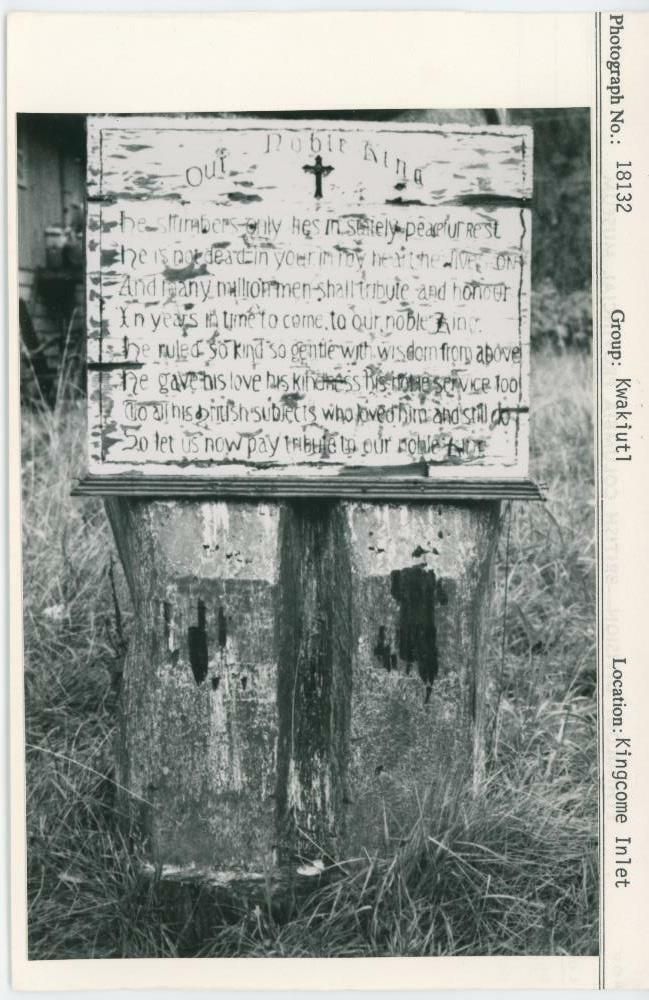 Our Noble King
he slumbers only lies in stately peaceful rest
he is not dead in your in my heart he lives on
And many million men shall tribute and honour
In years in time to come to our noble King.
he ruled so kind so gentle with wisdom from above
he gave his love his kindness his noble service too
To all his british subjects who loved him and still do
So let us now pay tribute to our noble King
Photograph No.: 18132 Group: Kwakiutl Location: Kingcome Inlet